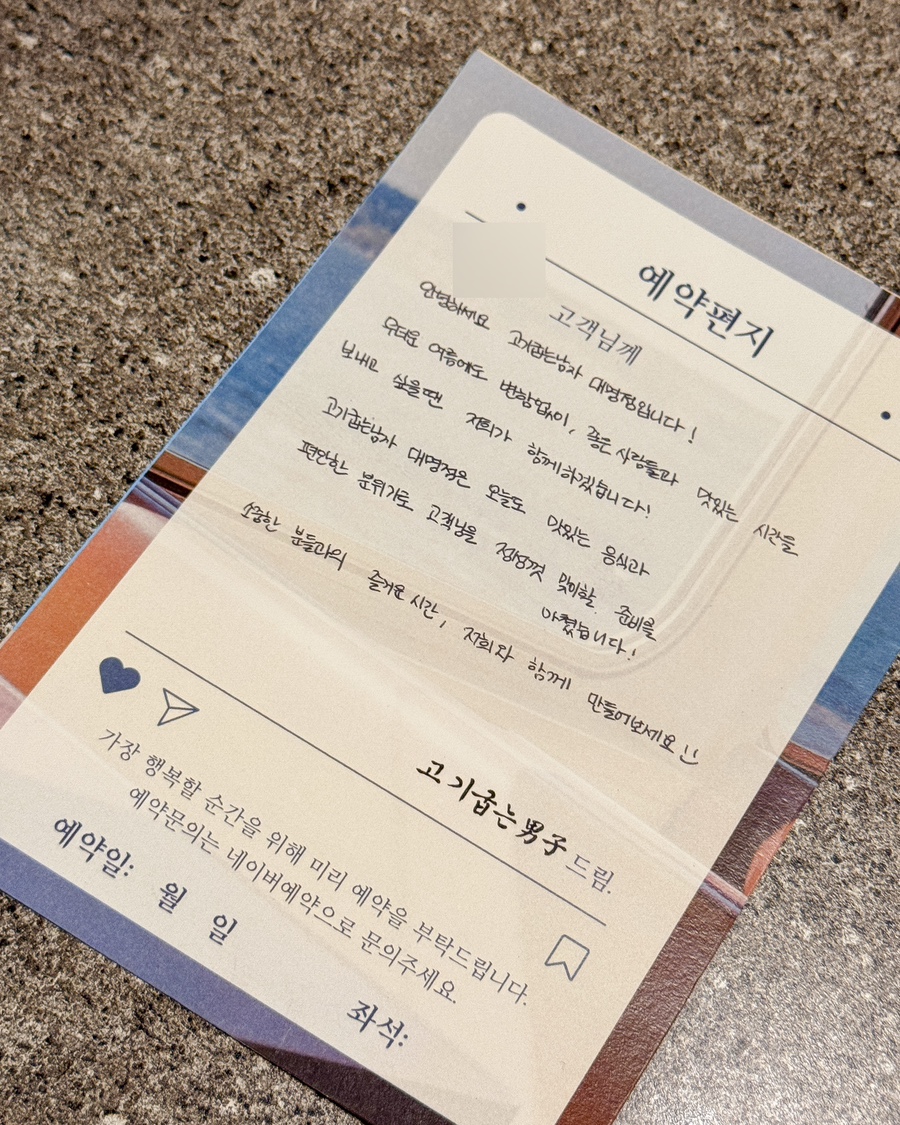 예약편지
고객님께
안녕하세요 고기굽는남자 대명점입니다!
무더운 여름에도 변함없이, 좋은 사람들과 맛있는 시간을
보내고 싶을땐 저희가 함께하겠습니다!
고기굽는남자 대명점은 오늘도 맛있는 음식과
편안한 분위기로 고객님을 정성껏 맞이할 준비를
마쳤습니다!
소중한 분들과의 즐거운 시간, 저희와 함께 만들어보세요
고기굽는男子 드림.
가장 행복할 순간을 위해 미리 예약을 부탁드립니다.
예약문의는 네이버예약으로 문의주세요.
예약일: 월 일
좌석: